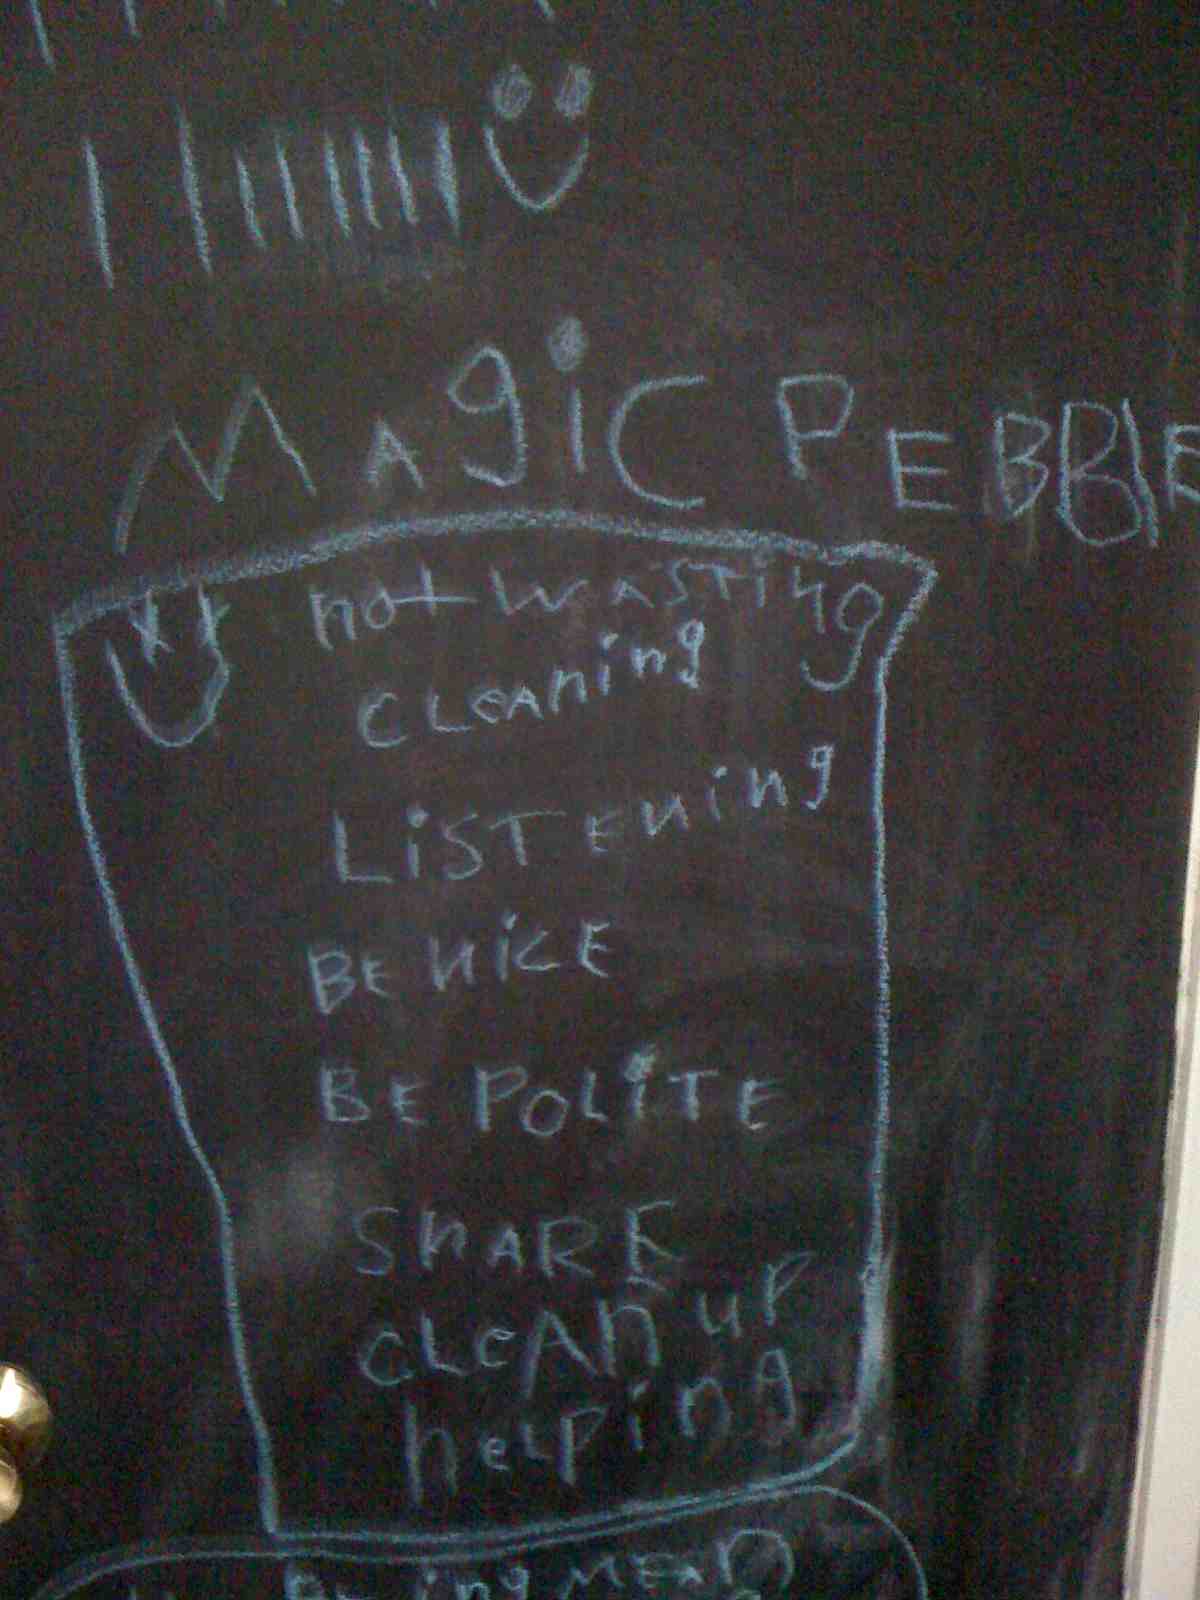 MAgiC PEBBlE
not WASTing
CLEAning
LiSTEning
BE niCE
BE POLiTE
SHARE
CLEAn up
helping
BEing MEAn